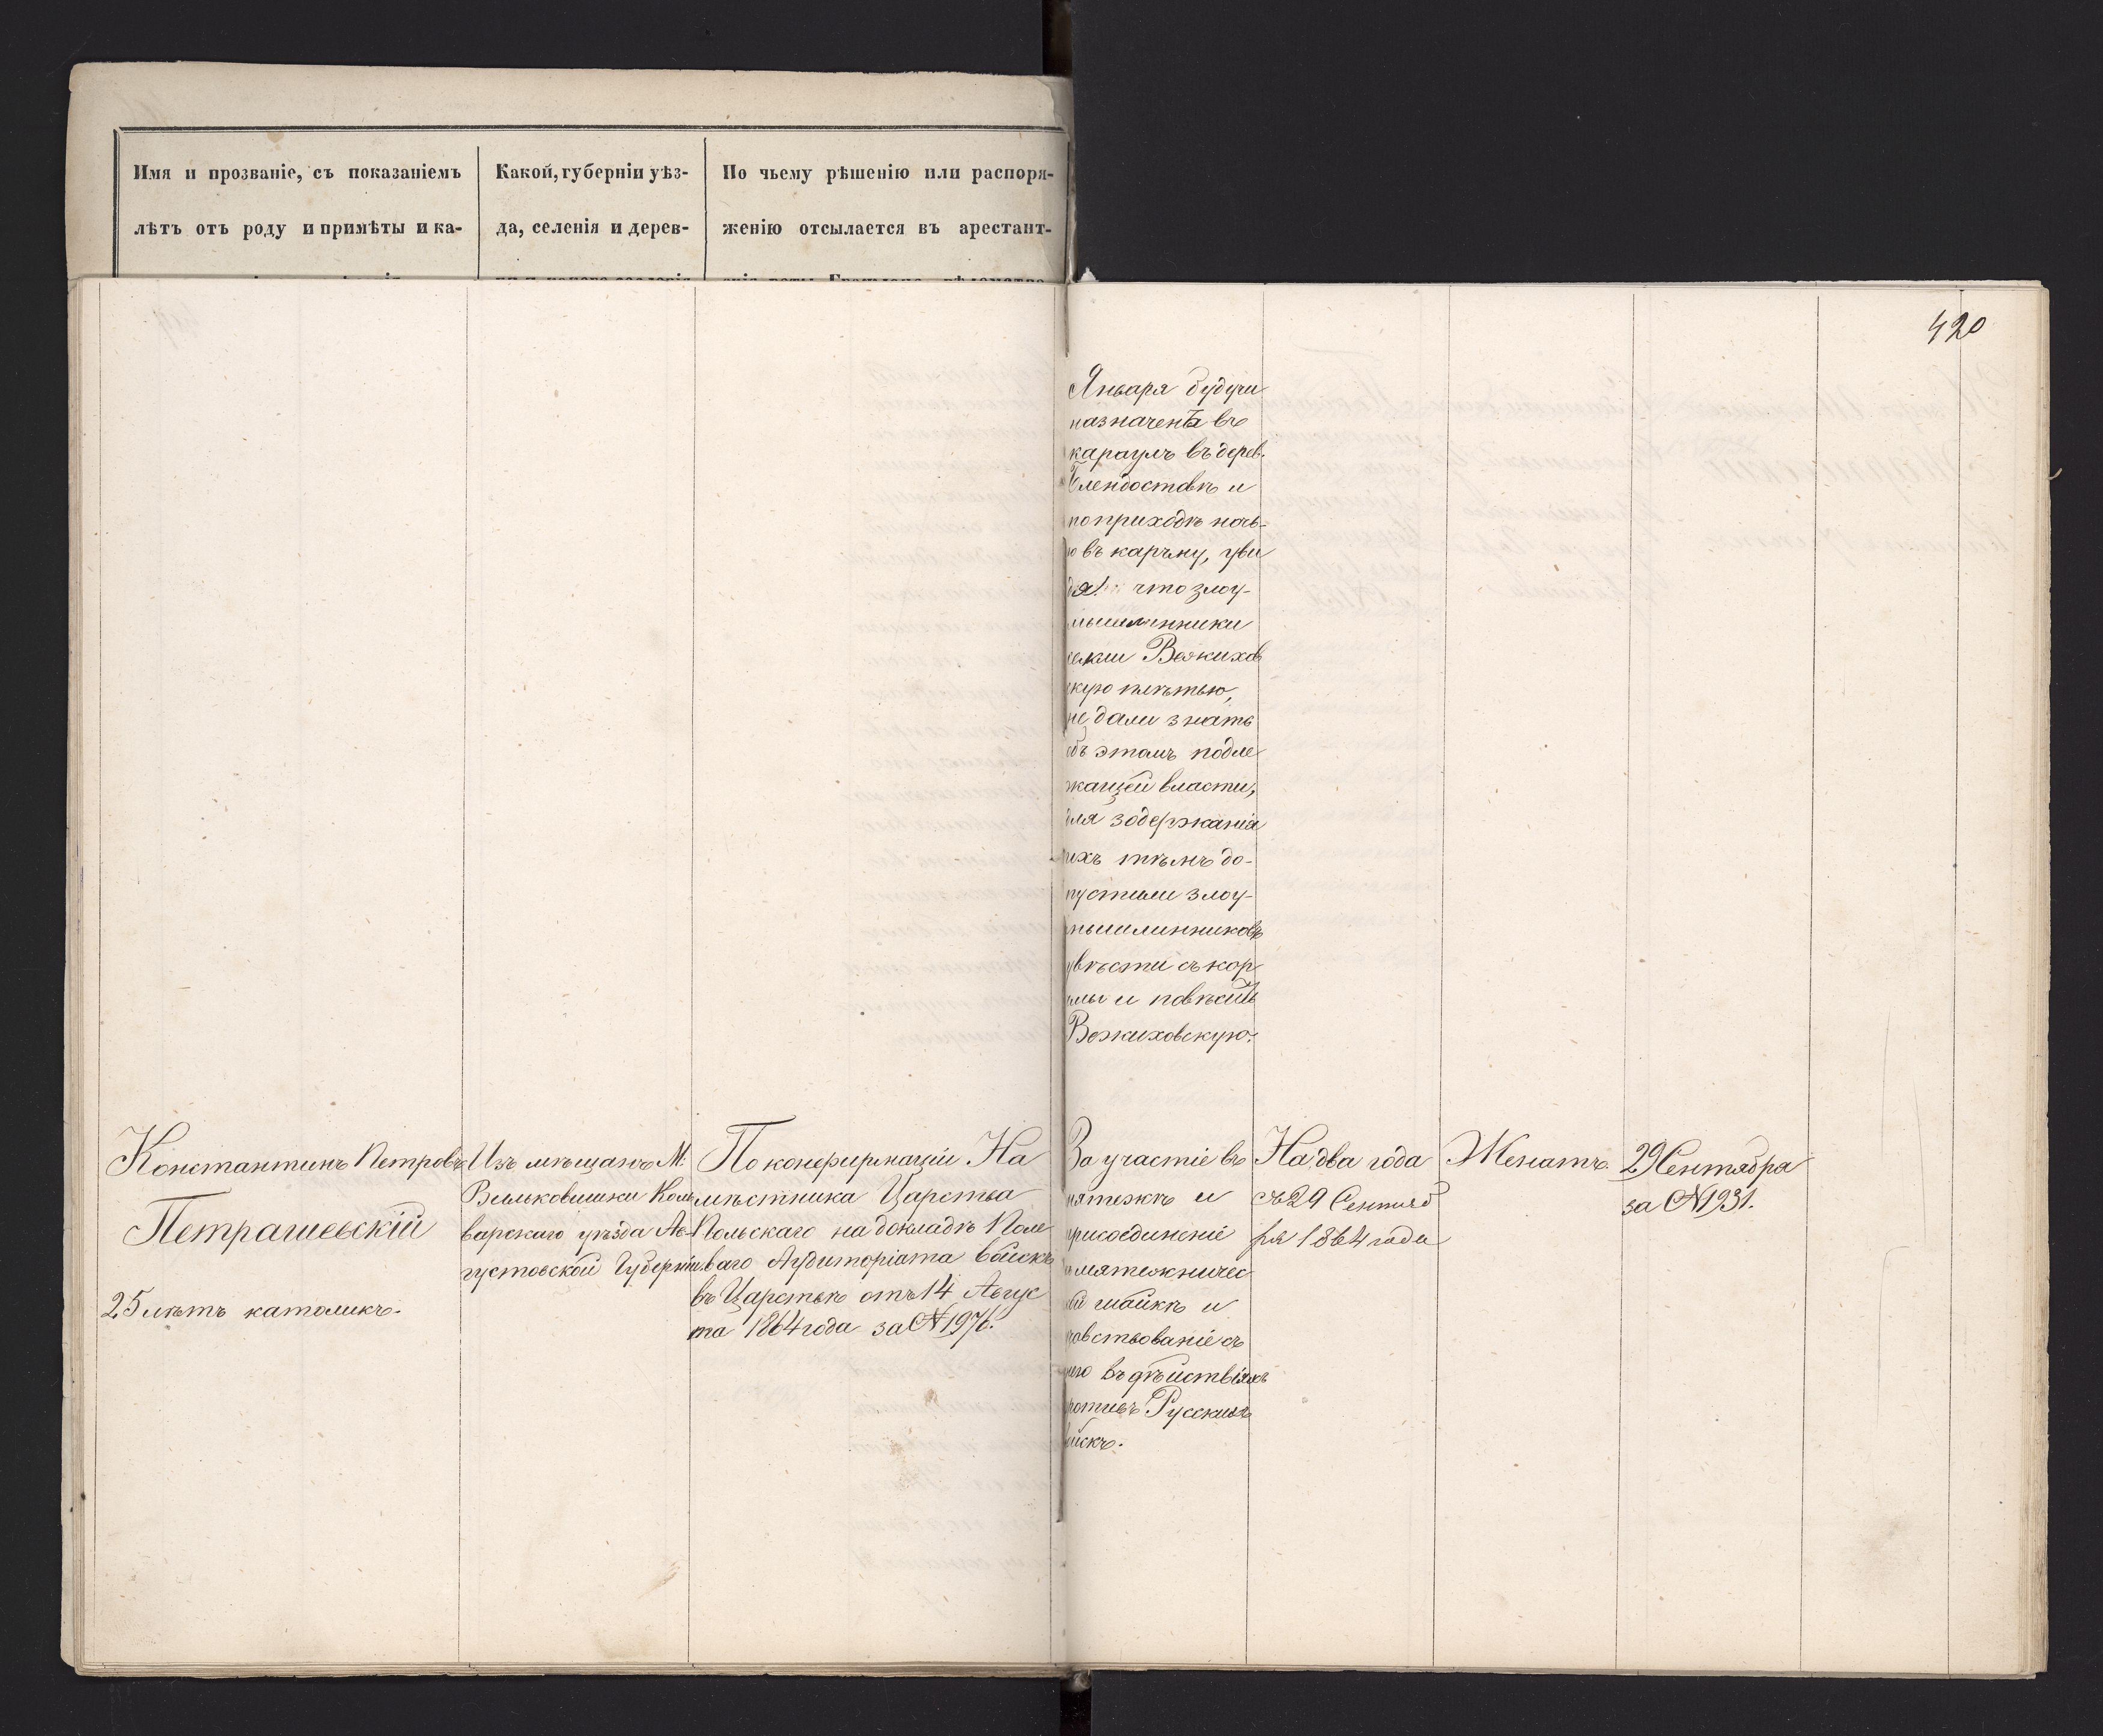 Имя и прозваніе, съ показаніемъ
лѣтъ отъ роду и примѣты и ка-
Какой, губерніи уѣз-
да, селенія и дерев-
По чьему рѣшенію или распоря-
женію отсылается въ арестант-
420
Января будучи
назначены въ
караулъ въ дерев.
и
по приходѣ ночь-
ю въ карчму, уви
дя что злоу-
мышленники
секли Вожихов
скую плѣтью,
не дали знать
объ этомъ подле
жащей власти,
для задержанія
ихъ тѣмъ до-
пустили злоу-
мышлинниковъ
увѣсти съ кор
чмы и повѣсить
Вожиховскую.
Константинъ Петровъ
Петрашевскій
25 лѣтъ католикъ.
Изъ мѣщанъ М.
Вильковишки Каль
варскаго уѣзда Ав-
густовской Губерніи
По конфирмаціи На
мѣстника Царства
Польскаго на докладѣ Поле
ваго Аудиторіата войскъ
въ Царствѣ отъ 14 Авгус
та 1864 года за №1976.
За участіе въ
мятежѣ и
присоединеніе
къ мятежничес
кой шайкѣ и
съ
нею въ дѣйствіяхъ
противъ Русскихъ
войскъ.
На два года
съ 29 Сентяб
ря 1864 года
Женатъ.
29 Сентября
за №1931.